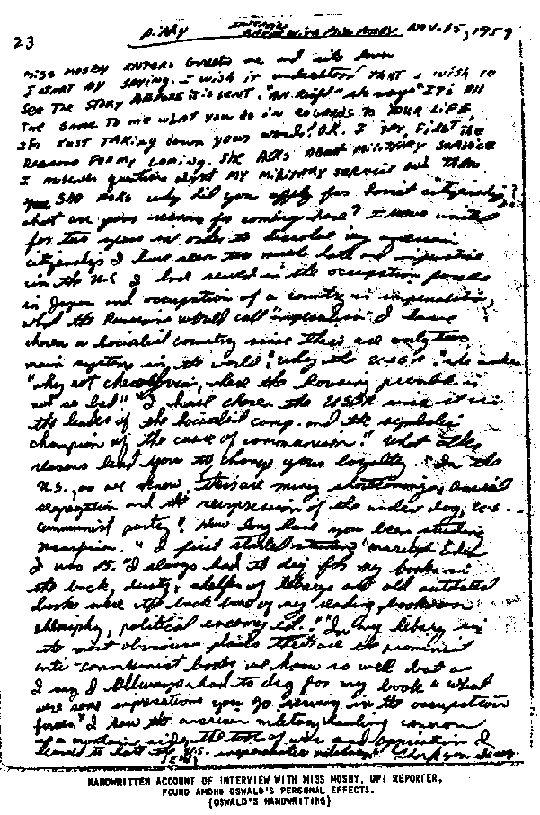 23
Diary Interview Nov. 15, 1959
Miss Mosby enters greets me and sits down
I start by saying. I wish it understood that I wish to
see the story before it is sent. "All Right" she says" It's all
the same to me what you do in regards to your life
I'm just taking down your words" OK. I say, First the
reasons for my coming. She asks about military service
I answer questions about my military service and then
she asks why did you apply for Soviet citizenship?
what are your reasons for coming here? I have waited
for two years in order to dissolve my american
citizenship I have seen too much hate and injustice
in the U.S. I had served in the occupation forces
in Japan and occupation of a country is imperialistic,
what the Russians would call "imperialism" I have
chosen a socialist country since there are only two
main systems in the world." why the USSR? she
"why not where the housing problem is
not so bad" "I have chosen the USSR since it is
the leader of the socialist camp. and the symbolic
champion of the cause of communism." What other
reasons lead you to change your loyalty. "In the
U.S., as we know there are many shortcomings, racial
segregation and the suppression of the under dog,
communist party" How long have you been studying
Marxism. " I first started studying marxism when
I was 15. "I always had to dig for my books in
the back, dusty, shelves of libarys and old outdated
books were the back bone of my reading, books on
philosophy, political economy ect." "In any libary in
the most obvious places there are the prominent
anti-communist books we know so well but as
I say I allways had to dig for my books" what
were some impressions you got serving in the occupation
forces "I saw the american military hauling cannon
up a mountain side, the tools of war and oppression I
learned to hate the U.S. imperialistic military
HANDWRITTEN ACCOUNT OF INTERVIEW WITH MISS MOSBY, UPI REPORTER,
FOUND AMONG OSWALD'S PERSONAL EFFECTS.
(OSWALD'S HANDWRITING)